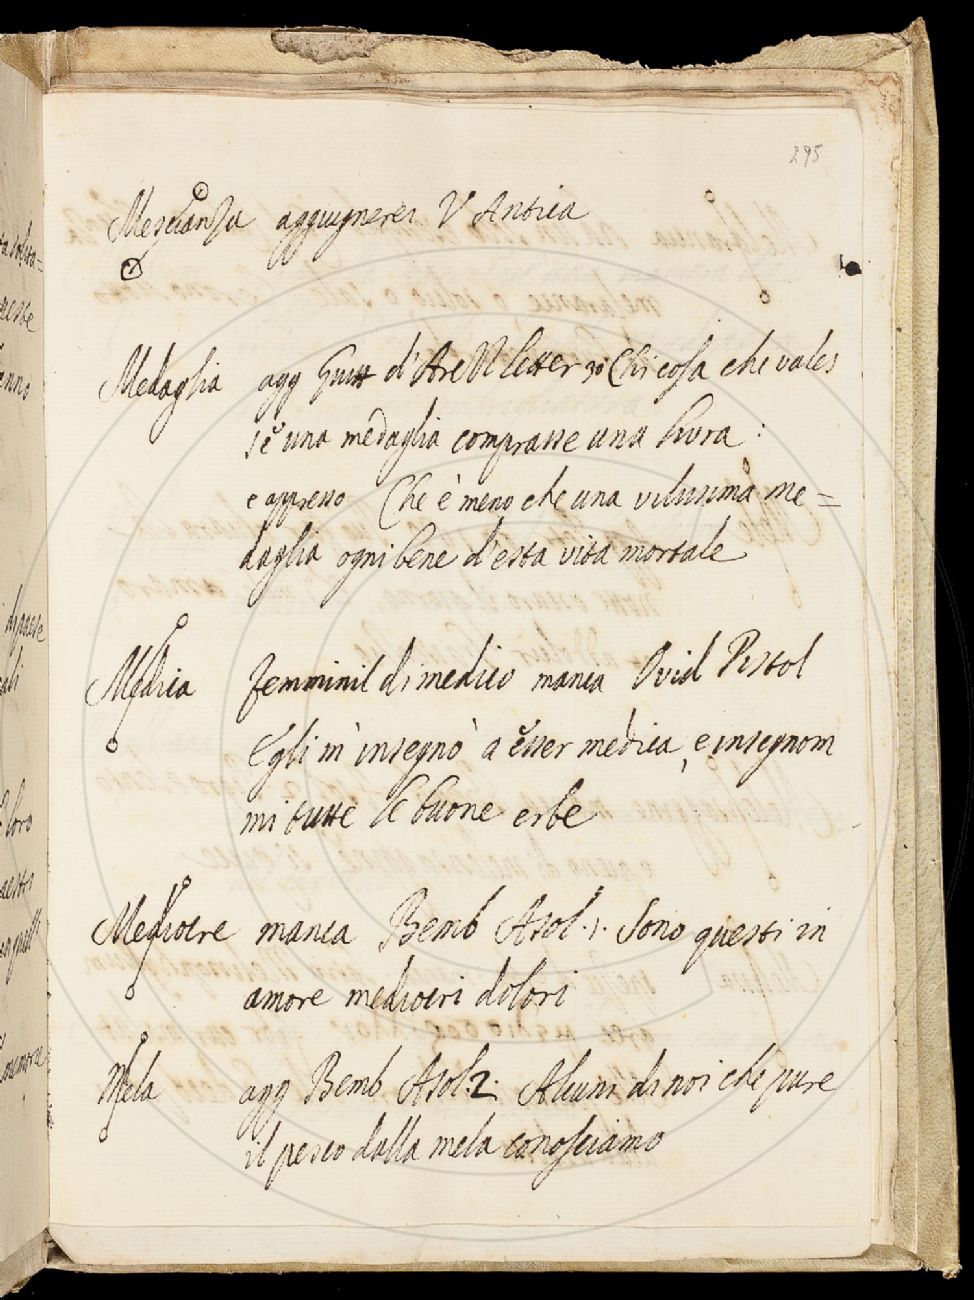 295
Mescianza aggiugnerei V Antica
Medaglia agg Guitt d'Are VI letter 30 Chi cosa che vales
se una medaglia comprasse una livra :
e appresso Che è meno che una vilissima me=
daglia ogni bene d'esta vita mortale
Medica femminil di medico manca Ovid Pistol
Egli m' insegnò a esser medica, e insegnom
mi tutte le buone erbe
Mediocre manca Bemb Asol. 1. Sono questi in
amore mediocri dolori
Mela agg Bemb Asol. 2. Alcuni di noi che pure
il pesco dalla mela conosciamo